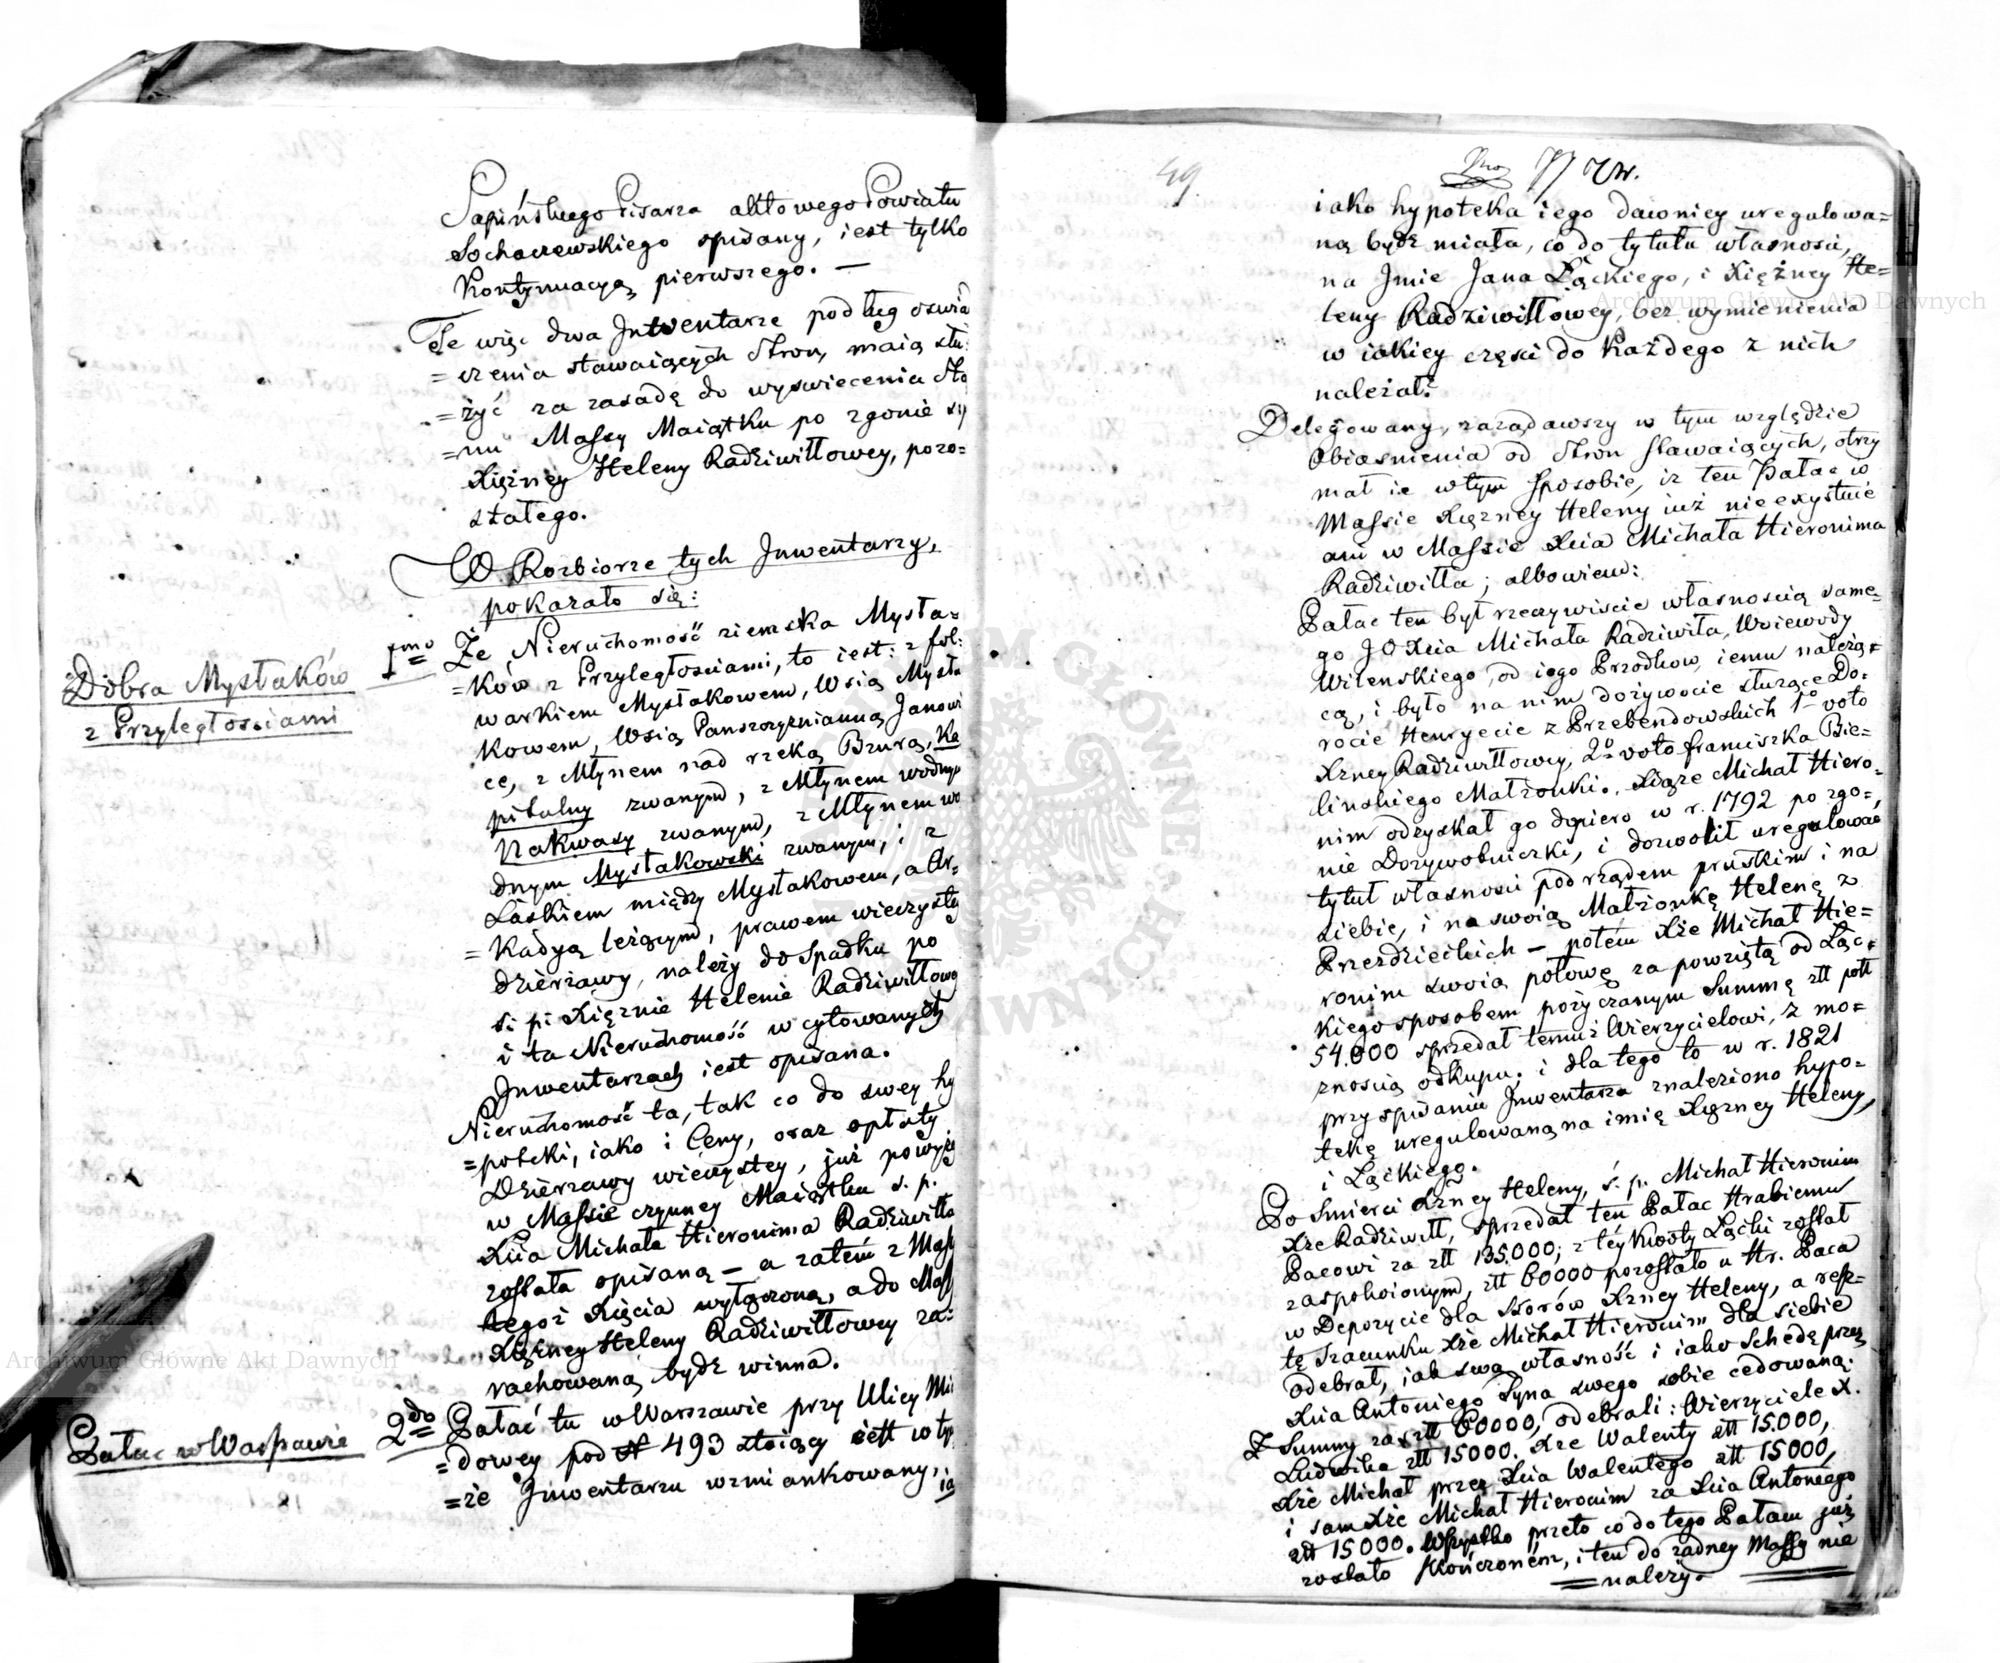 Sapińskiego Pisarza aktowego Powiatu
Sochaczewskiego spisany, iest tylko
Kontynuacyą pierwszego. —
Te więc dwa Inwentarze podług oswia
=czenia stawaiących Stron, maią słu:
=żyć za zasadę do wyswiecenia Sta
=nu Massy Maiątku po zgonie ś p
Xiężney Heleny Radziwiłłowey, pozo=
stałego.
W Rozbiorze tych Inwentarzy,
pokazało się:
Dobra Mysłaków
z Przyległosciami
1mo Że Nieruchomość ziemska Mysła=
=ków z Przyległosciami, to iest: z fol:
warkiem Mysłakowem, Wsią Mysła
kowem, Wsią Pansczyznianną Janowi
ce, z Młynem nad rzeką Bzurą, Ka
pitulny zwanym, z Młynem wodnym
Nakwasy zwanym, z Młynem wo
dnym Mysłakowski zwanym, i z
Laskiem między Mysłakowem, a Ar=
=kadyą leżącym, prawem wieczystey
dzierżawy, należy do Spadku po
ś: p: Xiężnie Helenie Radziwiłłowey
i ta Nieruchomość w cytowanych
Inwentarzach iest opisana.
Nieruchomość ta, tak co do swey hy
=poteki, iako i Ceny, oraz opłaty
Dzierżawy wieczystey, już powyżey
w Massie czynney Maiątku ś. p.
Xcia Michała Hieronima Radziwiłła
została opisaną — a zatem z Massy
tegoż Xięcia wyłączoną, a do Massy
Xiężney Heleny Radziwiłłowey za:
rachowaną bydź winna.
Pałac w Warszawie
2do Pałac tu w Warszawie przy Ulicy Mio
=dowey pod N 493 stoiący iest w tym
=że Inwentarzu wzmiankowany, ia
49.
iako hypoteka iego dawniey uregulowa=
ną bydź miała, co do tytułu własnosci,
na Imie Jana Łąckiego, i Xiężney He=
leny Radziwiłłowey, bez wymienienia
w iakiey części do każdego z nich
należał?
Delegowany, zażądawszy w tym względzie
Obiasnienia od Stron stawaiących, otrzy
mał ie w tym sposobie, iż ten Pałac w
Massie Xiężney Heleny już nie exystuie
ani w Massie Xcia Michała Hieronima
Radziwiłła; albowiem:
Pałac ten był rzeczywiscie własnoscią same=
go JO Xcia Michała Radziwiłła, Woiewody
Wilenskiego, od iego Przodkow iemu należą=
cą, i było na nim dożywocie służące Do:
rocie Henryecie z Przebendowskich 1o voto
Xzney Radziwiłłowey, 2o voto franciszka Bie=
linskiego Małżonki. Xiąże Michał Hiero:
nim odzyskał go dopiero w r. 1792 po zgo=
nie Dożywotniczki, i dozwolił uregulować
tytuł własnosci pod rządem pruskim i na
siebie, i na swoią Małżonkę Helenę z
Przezdzieckich — potém Xże Michał Hie=
ronim swoią połowę za powziętą od Łąc=
kiego sposobem pożyczanym Summę złł poll
54.000 sprzedał temuż Wierzycielowi, z mo=
żnoscią odkupu. i dla tego to w r. 1821
przy spisaniu Inwentarza znaleziono hypo=
tekę uregulowaną na imię Xiężney Heleny,
i Łąckiego.
Po smierci Xzney Heleny, ś. p. Michał Hieronim
Xże Radziwiłł, sprzedał ten Pałac Hrabiemu
Pacowi za złł 135.000; z téy kwoty Łącki został
zaspokoionym, złł 60000 pozostało u Hr. Paca
w Depozycie dla Ssorów Xzney Heleny, a resz=
tę Szacunku Xże Michał Hieronim dla siebie
odebrał, iak swą własność i iako Schedę przez
Xcia Antoniego Syna swego sobie cedowaną.
Z Summy zaś złł 60000, odebrali: Wierzyciele X.
Ludwika złł 15000. Xże Walenty złł 15.000,
Xże Michał przez Xcia Walentego złł 15000,
i sam Xże Michał Hieronim za Xcia Antoniego
złł 15000. Wszystko przeto co do tego Pałacu już
zostało skończoném, i ten do żadney Massy nie
należy.